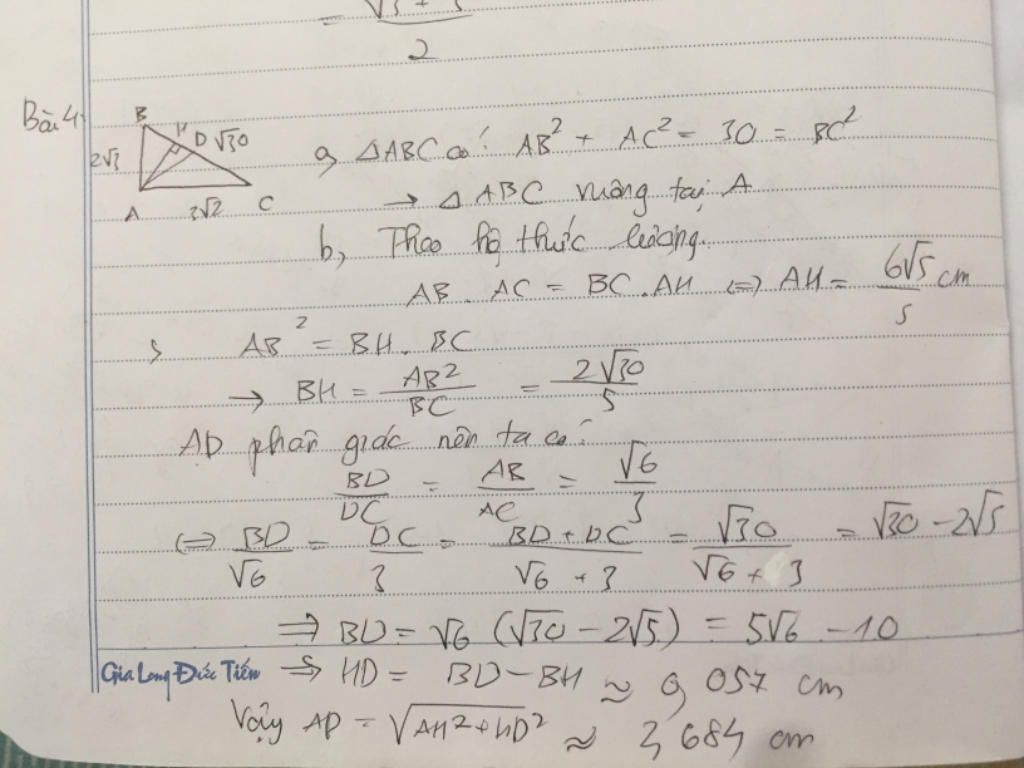 = (√3 + 3)/2
Bài 4:
B
H
D √30
2√3
A
3√2
C
a, △ABC có: AB² + AC² = 30 = BC²
→ △ ABC vuông tại A
b, Theo hệ thức lượng.
AB . AC = BC . AH ⇔ AH = 6√5/5 cm
AB² = BH . BC
→ BH = AB²/BC = 2√30/5
AD phân giác nên ta có:
BD/DC = AB/AC = √6/3
⇔ BD/√6 = DC/3 = (BD + DC)/(√6 + 3) = √30/(√6 + 3) = √30 - 2√5
⇒ BD = √6 (√30 - 2√5) = 5√6 - 10
Gia Long Đức Tiến
⇒ HD = BD - BH ≈ 0,057 cm
Vậy AD = √(AH² + HD²) ≈ 2,684 cm